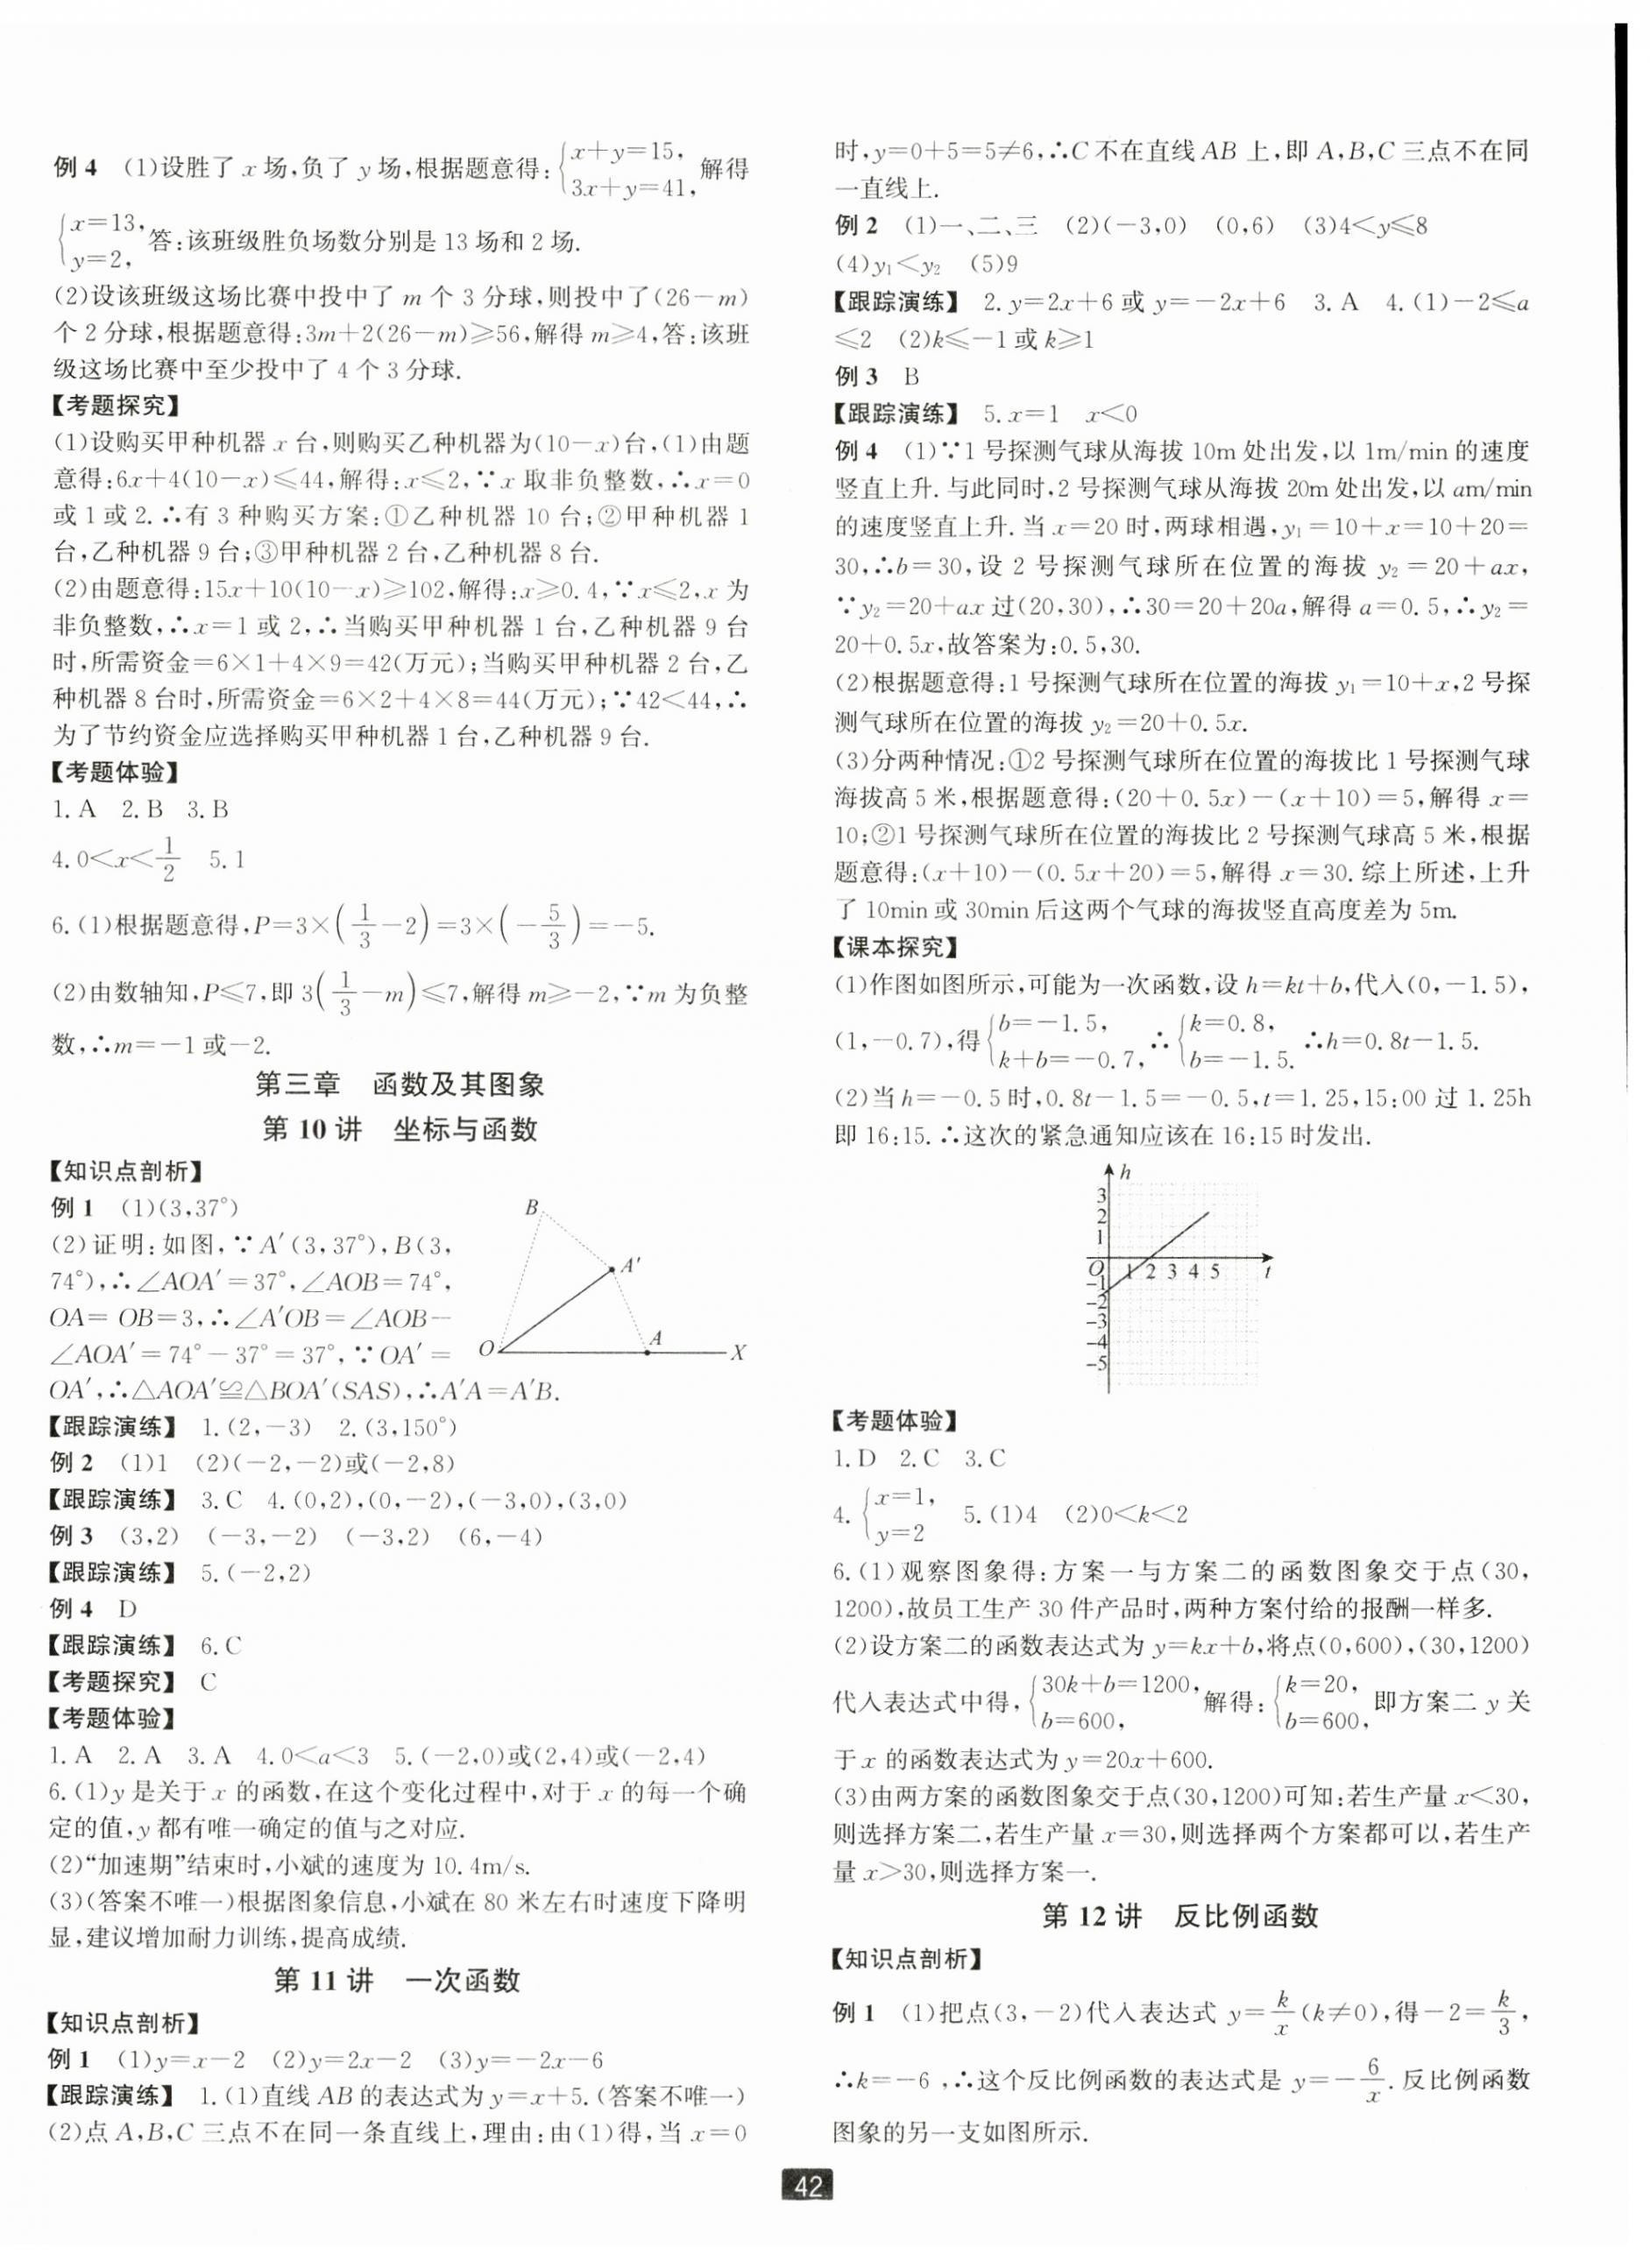 例 4 (1)设胜了 x 场,负了 y 场,根据题意得:{x+y=15, 3x+y=41, 解得
{x=13, y=2, 答:该班级胜负场数分别是 13 场和 2 场.
(2)设该班级这场比赛中投中了 m 个 3 分球,则投中了(26-m)
个 2 分球,根据题意得:3m+2(26-m)≥56,解得 m≥4,答:该班
级这场比赛中至少投中了 4 个 3 分球.
【考题探究】
(1)设购买甲种机器 x 台,则购买乙种机器为(10-x)台,(1)由题
意得:6x+4(10-x)≤44,解得:x≤2,∵x 取非负整数,∴x=0
或 1 或 2.∴有 3 种购买方案:①乙种机器 10 台;②甲种机器 1
台,乙种机器 9 台;③甲种机器 2 台,乙种机器 8 台.
(2)由题意得:15x+10(10-x)≥102,解得:x≥0.4,∵x≤2,x 为
非负整数,∴x=1 或 2,∴当购买甲种机器 1 台,乙种机器 9 台
时,所需资金=6×1+4×9=42(万元);当购买甲种机器 2 台,乙
种机器 8 台时,所需资金=6×2+4×8=44(万元);∵42<44,∴
为了节约资金应选择购买甲种机器 1 台,乙种机器 9 台.
【考题体验】
1. A 2. B 3. B
4. 0<x<1/2 5. 1
6. (1)根据题意得,P=3×(1/3-2)=3×(-5/3)=-5.
(2)由数轴知,P≤7,即 3(1/3-m)≤7,解得 m≥-2,∵m 为负整
数,∴m=-1 或-2.
第三章 函数及其图象
第 10 讲 坐标与函数
【知识点剖析】
例 1 (1)(3,37°)
(2)证明:如图,∵A′(3,37°),B(3,
74°),∴∠AOA′=37°,∠AOB=74°,
OA= OB=3,∴∠A′OB=∠AOB-
∠AOA′=74°-37°=37°,∵OA′=
OA′,∴△AOA′≌△BOA′(SAS),∴A′A=A′B.
B
A′
O
A
X
【跟踪演练】 1. (2,-3) 2. (3,150°)
例 2 (1)1 (2)(-2,-2)或(-2,8)
【跟踪演练】 3. C 4. (0,2),(0,-2),(-3,0),(3,0)
例 3 (3,2) (-3,-2) (-3,2) (6,-4)
【跟踪演练】 5. (-2,2)
例 4 D
【跟踪演练】 6. C
【考题探究】 C
【考题体验】
1. A 2. A 3. A 4. 0<a<3 5. (-2,0)或(2,4)或(-2,4)
6. (1)y 是关于 x 的函数,在这个变化过程中,对于 x 的每一个确
定的值,y 都有唯一确定的值与之对应.
(2)“加速期”结束时,小斌的速度为 10.4m/s.
(3)(答案不唯一)根据图象信息,小斌在 80 米左右时速度下降明
显,建议增加耐力训练,提高成绩.
第 11 讲 一次函数
【知识点剖析】
例 1 (1)y=x-2 (2)y=2x-2 (3)y=-2x-6
【跟踪演练】 1. (1)直线 AB 的表达式为 y=x+5.(答案不唯一)
(2)点 A,B,C 三点不在同一条直线上,理由:由(1)得,当 x=0
时,y=0+5=5≠6,∴C 不在直线 AB 上,即 A,B,C 三点不在同
一直线上.
例 2 (1)一、二、三 (2)(-3,0) (0,6) (3)4<y≤8
(4)y₁<y₂ (5)9
【跟踪演练】 2. y=2x+6 或 y=-2x+6 3. A 4. (1)-2≤a
≤2 (2)k≤-1 或 k≥1
例 3 B
【跟踪演练】 5. x=1 x<0
例 4 (1)∵1 号探测气球从海拔 10m 处出发,以 1m/min 的速度
竖直上升. 与此同时,2 号探测气球从海拔 20m 处出发,以 am/min
的速度竖直上升. 当 x=20 时,两球相遇,y₁=10+x=10+20=
30,∴b=30,设 2 号探测气球所在位置的海拔 y₂=20+ax,
∵y₂=20+ax 过(20,30),∴30=20+20a,解得 a=0.5,∴y₂=
20+0.5x,故答案为:0.5,30.
(2)根据题意得:1 号探测气球所在位置的海拔 y₁=10+x,2 号探
测气球所在位置的海拔 y₂=20+0.5x.
(3)分两种情况:①2 号探测气球所在位置的海拔比 1 号探测气球
海拔高 5 米,根据题意得:(20+0.5x)-(x+10)=5,解得 x=
10;②1 号探测气球所在位置的海拔比 2 号探测气球高 5 米,根据
题意得:(x+10)-(0.5x+20)=5,解得 x=30. 综上所述,上升
了 10min 或 30min 后这两个气球的海拔竖直高度差为 5m.
【课本探究】
(1)作图如图所示,可能为一次函数,设 h=kt+b,代入(0,-1.5),
(1,-0.7),得{b=-1.5, k+b=-0.7, ∴{k=0.8, b=-1.5. ∴h=0.8t-1.5.
(2)当 h=-0.5 时,0.8t-1.5=-0.5,t=1.25,15:00 过 1.25h
即 16:15. ∴这次的紧急通知应该在 16:15 时发出.
h
3
2
1
O 1 2 3 4 5 t
-1
-2
-3
-4
-5
【考题体验】
1. D 2. C 3. C
4. {x=1, y=2 5. (1)4 (2)0<k<2
6. (1)观察图象得:方案一与方案二的函数图象交于点(30,
1200),故员工生产 30 件产品时,两种方案付给的报酬一样多.
(2)设方案二的函数表达式为 y=kx+b,将点(0,600),(30,1200)
代入表达式中得,{30k+b=1200, b=600, 解得:{k=20, b=600, 即方案二 y 关
于 x 的函数表达式为 y=20x+600.
(3)由两方案的函数图象交于点(30,1200)可知:若生产量 x<30,
则选择方案二,若生产量 x=30,则选择两个方案都可以,若生产
量 x>30,则选择方案一.
第 12 讲 反比例函数
【知识点剖析】
例 1 (1)把点(3,-2)代入表达式 y=k/x(k≠0),得-2=k/3,
∴k=-6 ,∴这个反比例函数的表达式是 y=-6/x. 反比例函数
图象的另一支如图所示.
42